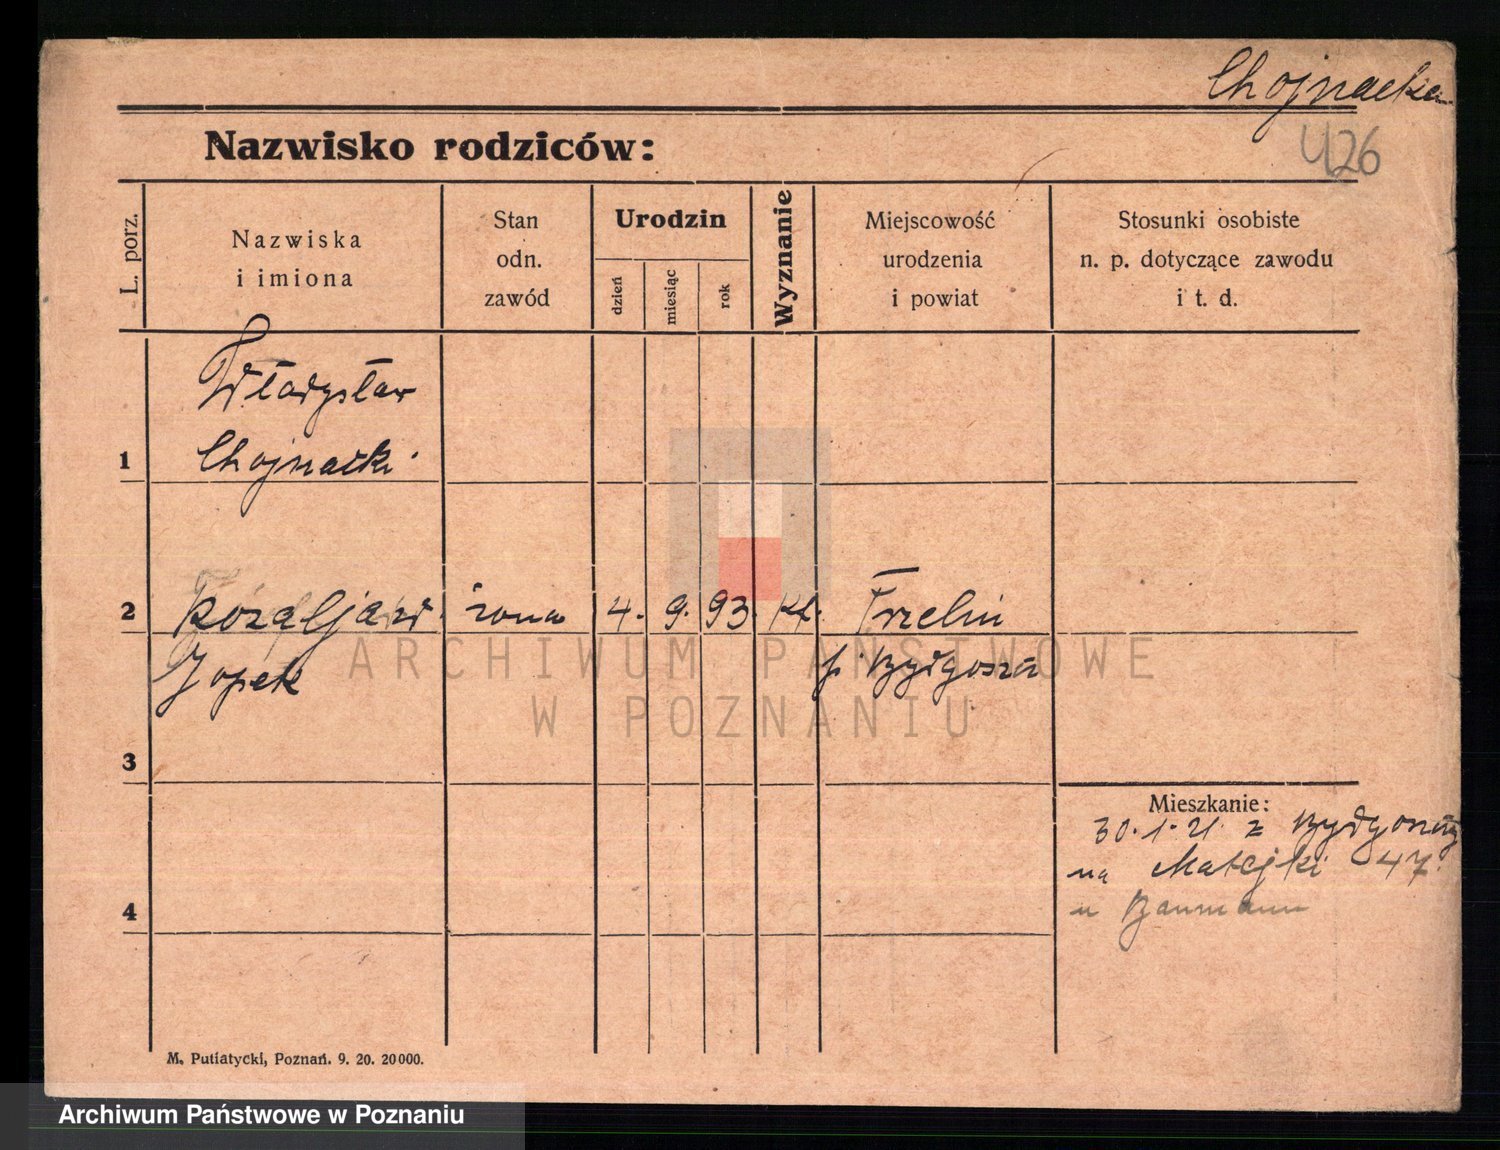 Chojnacka
426
Nazwisko rodziców:
L. porz.
Nazwiska
i imiona
Stan
odn.
zawód
Urodzin
dzień
miesiąc
rok
Wyznanie
Miejscowość
urodzenia
i powiat
Stosunki osobiste
n. p. dotyczące zawodu
i t. d.
Władysław
1 Chojnacki
2 żona 4. 9. 93. kt.
Jopek
3
Mieszkanie:
30. 1. 21. z Bydgoszczy
na Matejki 47.
u Baumann
4
M. Putiatycki, Poznań. 9. 20. 20000.
ARCHIWUM PAŃSTWOWE
W POZNANIU
Archiwum Państwowe w Poznaniu